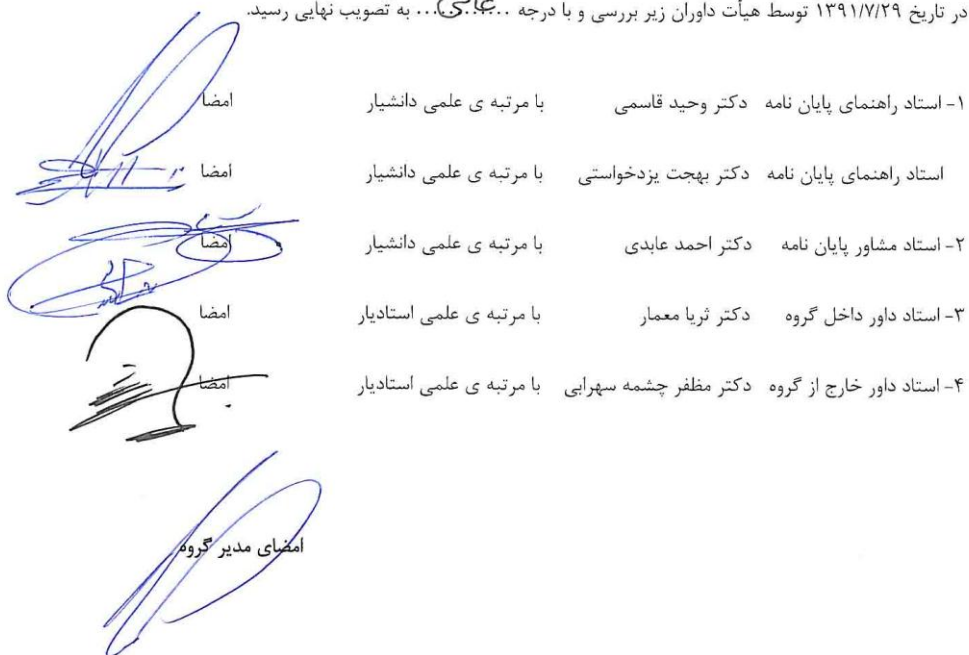 در تاریخ ۱۳۹۱/۷/۲۹ توسط هیأت داوران زیر بررسی و با درجه ...عالی... به تصویب نهایی رسید.
۱- استاد راهنمای پایان نامه دکتر وحید قاسمی با مرتبه ی علمی دانشیار امضا
استاد راهنمای پایان نامه دکتر بهجت یزدخواستی با مرتبه ی علمی دانشیار امضا
۲- استاد مشاور پایان نامه دکتر احمد عابدی با مرتبه ی علمی دانشیار امضا
۳- استاد داور داخل گروه دکتر ثریا معمار با مرتبه ی علمی استادیار امضا
۴- استاد داور خارج از گروه دکتر مظفر چشمه سهرابی با مرتبه ی علمی استادیار امضا
امضای مدیر گروه